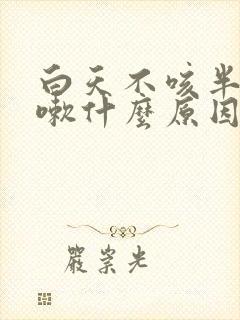 白天不咳半
嗽什麼原因
嚴崇光